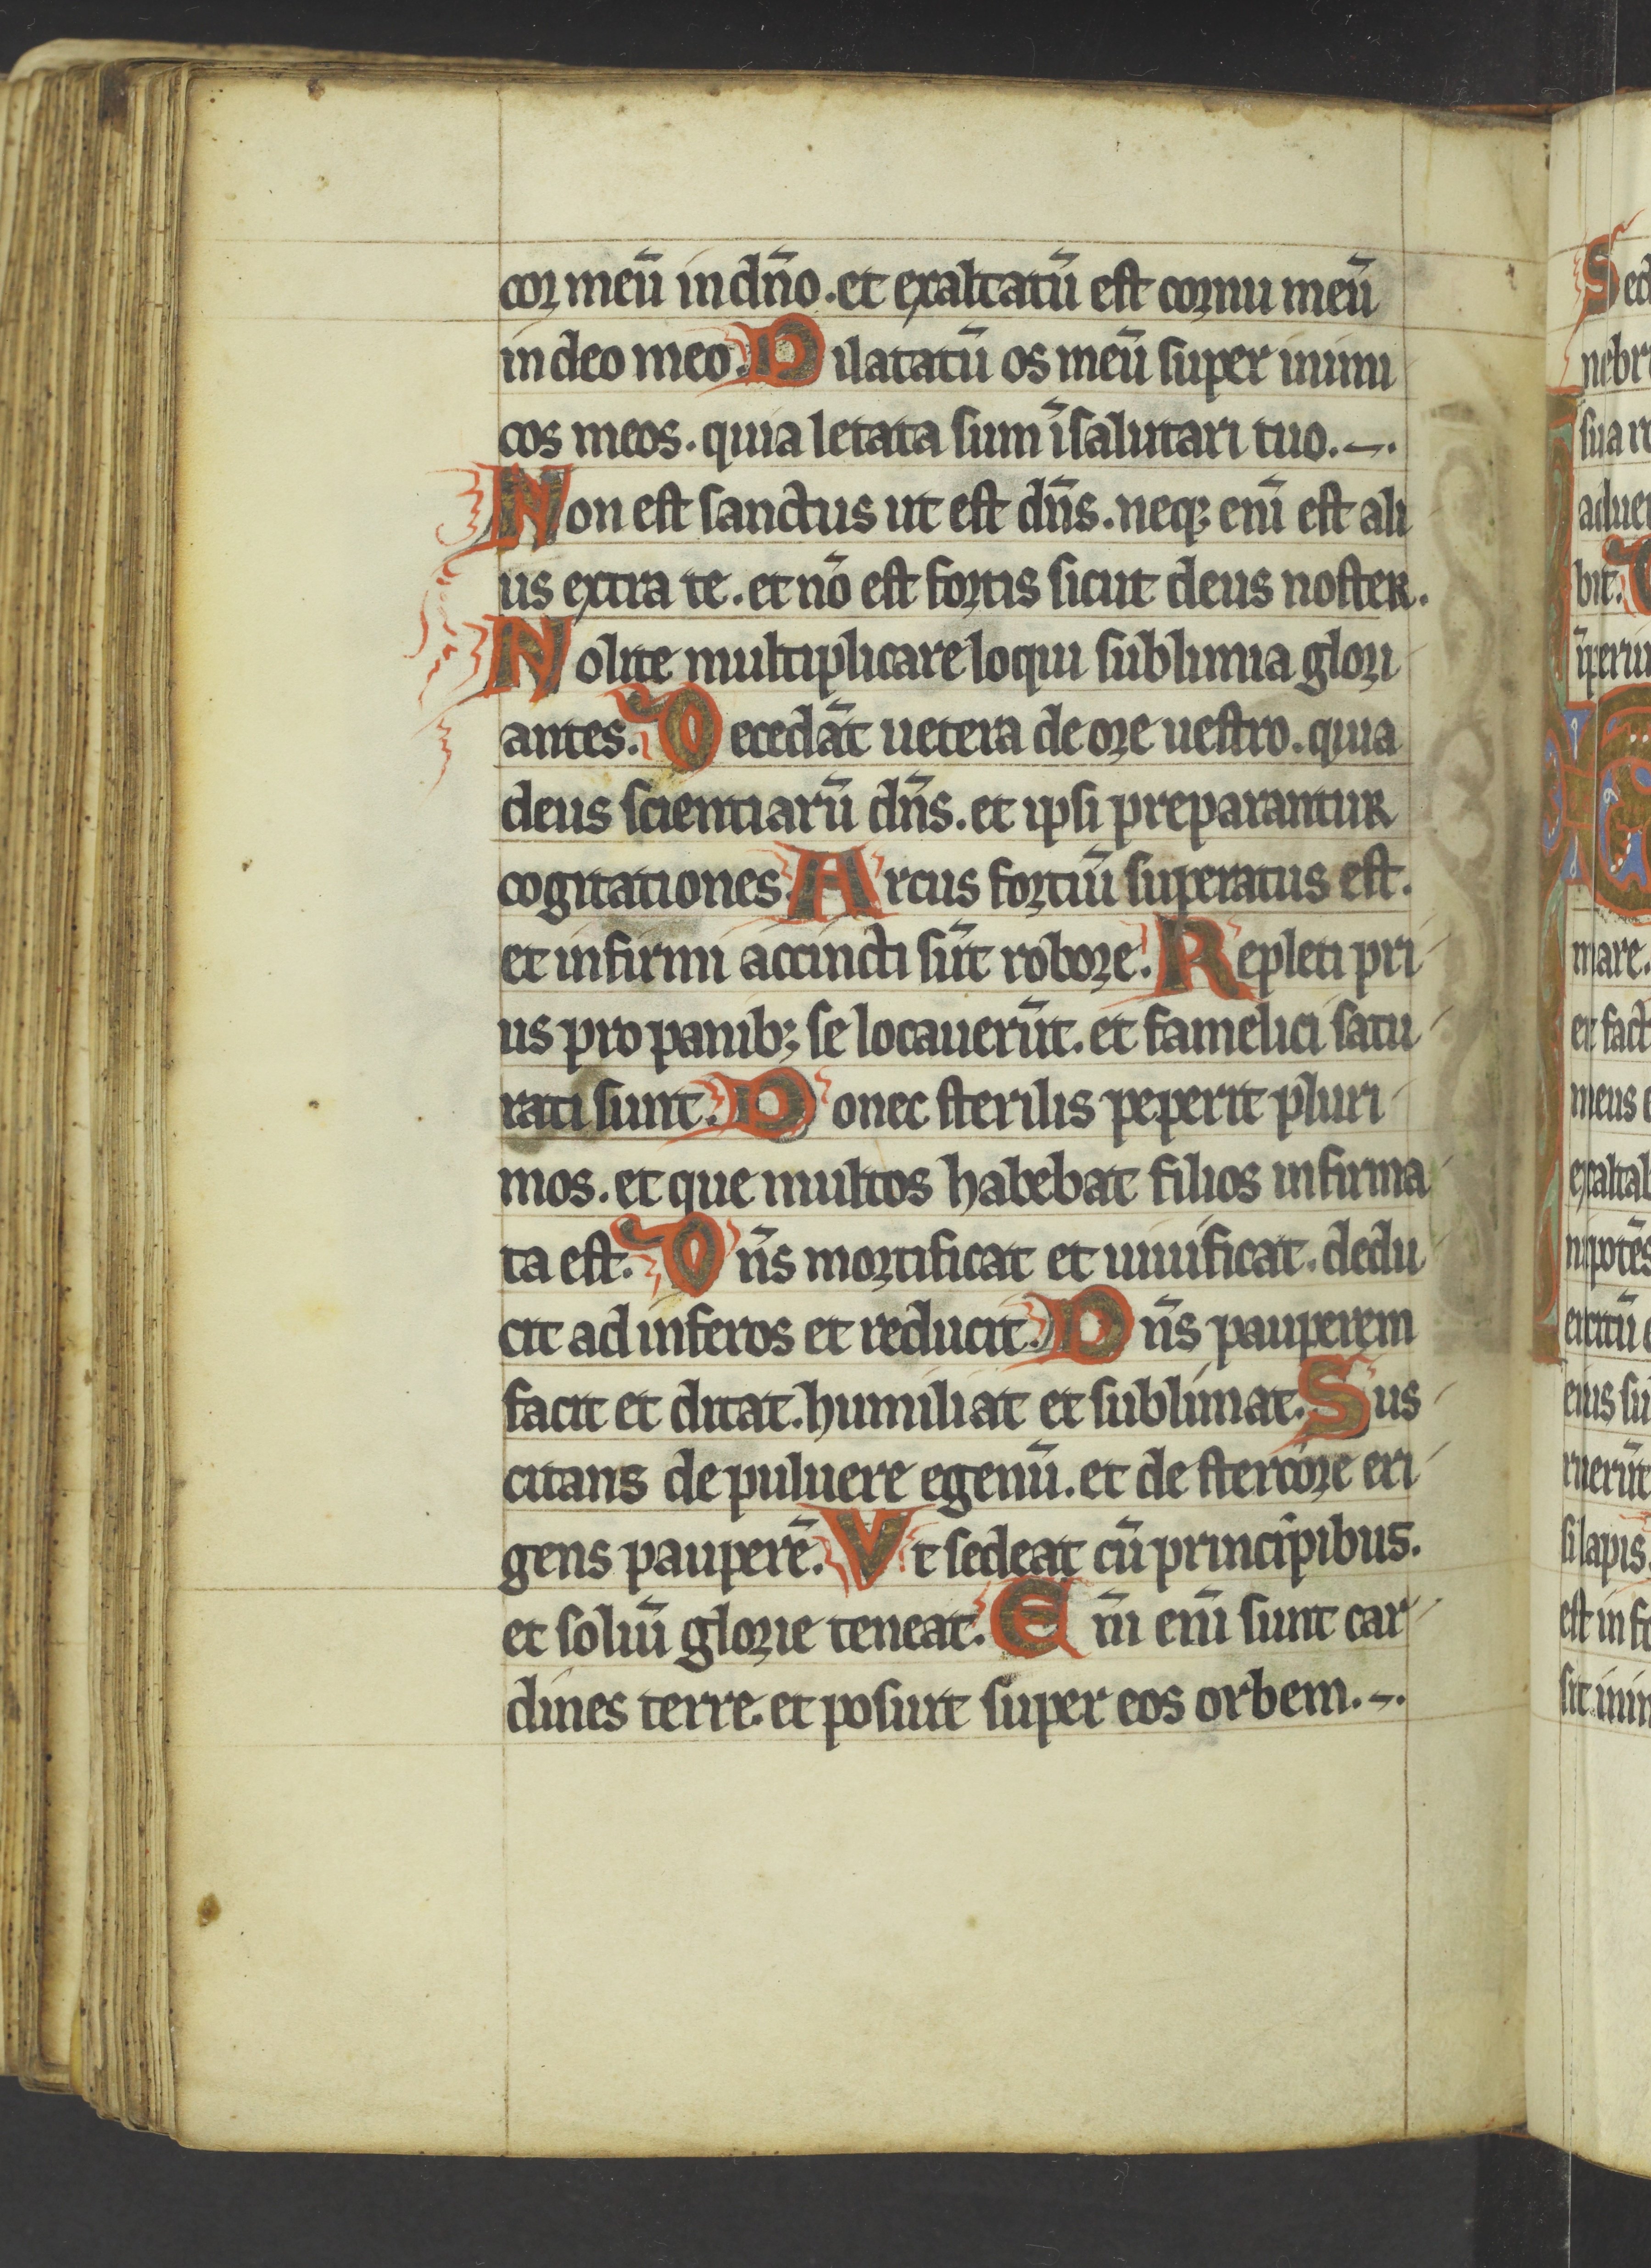 cor meū in dn̄o. et exaltatū est cornu meū
in deo meo. Dilatatū os meū super inimi
cos meos. quia letata sum ī salutari tuo.
Non est sanctus ut est dn̄s. neq; enī est ali
us extra te. et nō est fortis sicut deus noster.
Nolite multiplicare loqui sublimia glori
antes. Decedāt uetera de ore uestro. quia
deus scientiarū dn̄s. et ipsi preparantur
cogitationes. Arcus fortiū superatus est.
et infirmi accincti sūt robore. Repleti pri
us pro panib; se locauerūt. et famelici satu
rati sunt. Donec sterilis peperit pluri
mos. et que multos habebat filios infirma
ta est. Dn̄s mortificat et uiuificat. dedu
cit ad inferos et reducit. Dn̄s pauperem
facit et ditat. humiliat et sublimat. Sus
citans de puluere egenū. et de stercore eri
gens pauperē. Vt sedeat cū principibus.
et soliū glorie teneat. Dn̄i enī sunt car
dines terre. et posuit super eos orbem.
Sed
nebr
sua
adue
bit.
mare.
et fact
meus
exaltab
nipotēs
ercitū
eius su
ruerūt
si lapis.
est in fo
sit